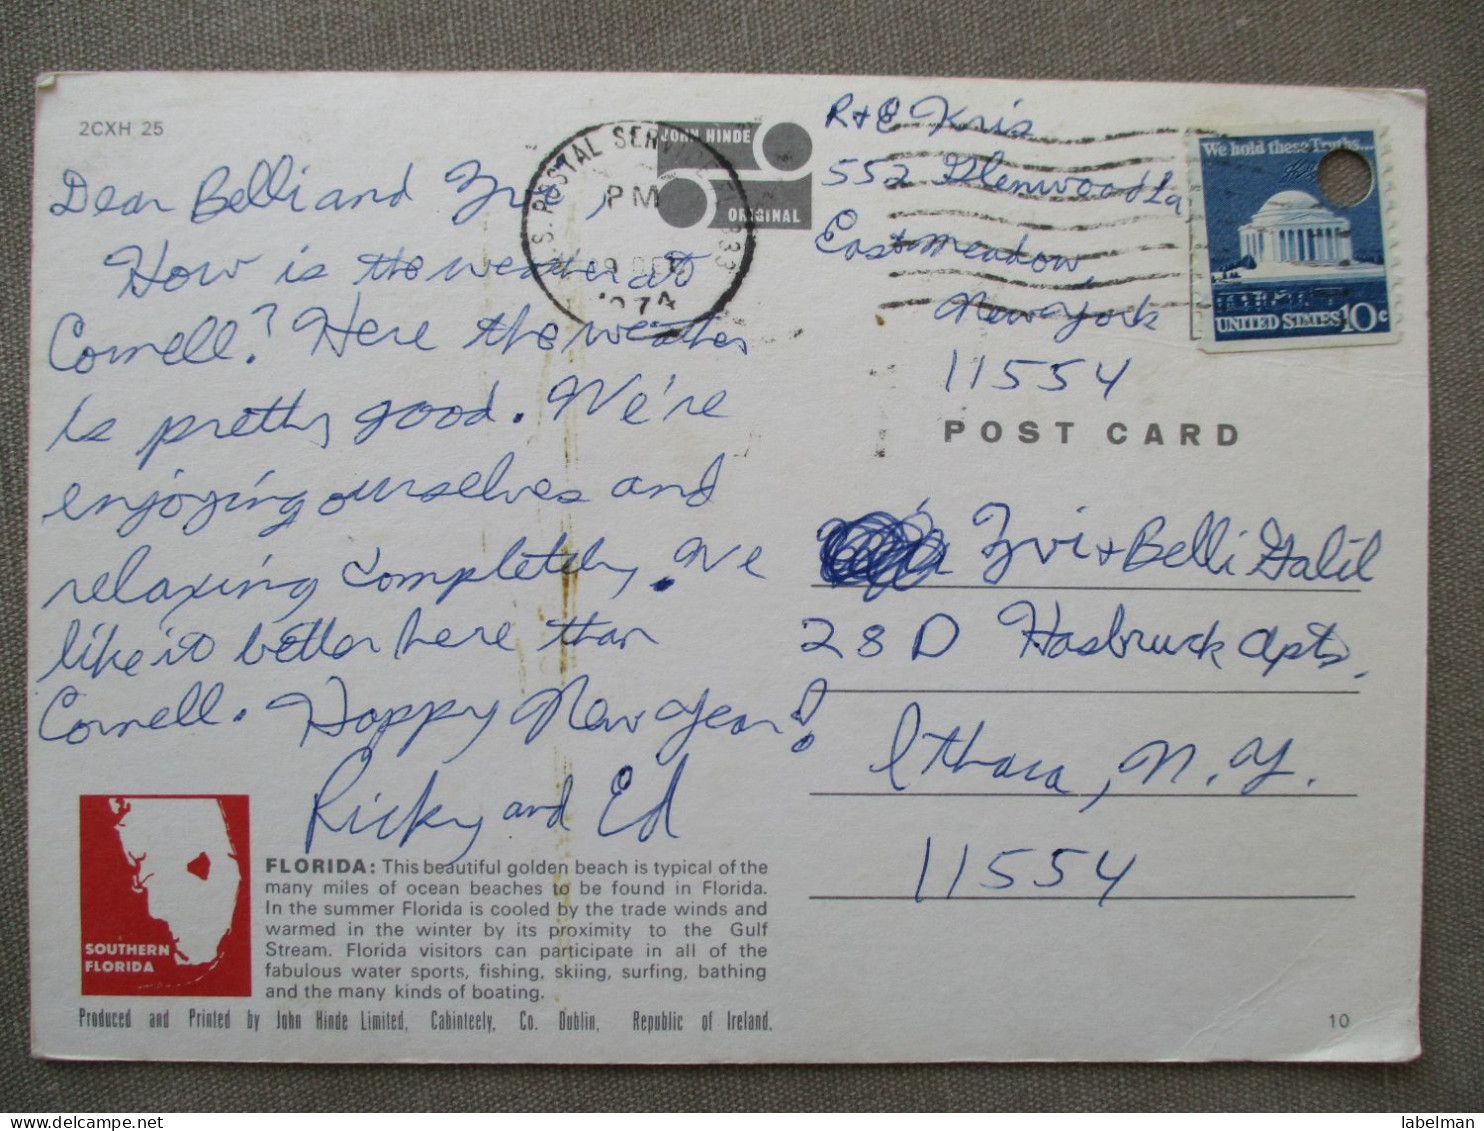 2CXH 25
JOHN HINDE
ORIGINAL
U.S. POSTAL SERVICE
PM
DEC
1974
We hold these Truths...
UNITED STATES 10c
Dear Belli and Zvi,
How is the weather at
Cornell? Here the weather
is pretty good. We're
enjoying ourselves and
relaxing completely. We
like it better here than
Cornell. Happy New Year!
Ricky and Ed
R + E Kris
552 Glenwood La
East Meadow,
New York
11554
POST CARD
Zvi + Belli Galil
28 D Hasbruck Apts.
Ithaca, N.Y.
11554
SOUTHERN
FLORIDA
FLORIDA: This beautiful golden beach is typical of the
many miles of ocean beaches to be found in Florida.
In the summer Florida is cooled by the trade winds and
warmed in the winter by its proximity to the Gulf
Stream. Florida visitors can participate in all of the
fabulous water sports, fishing, skiing, surfing, bathing
and the many kinds of boating.
Produced and Printed by John Hinde Limited, Cabinteely, Co. Dublin, Republic of Ireland.
10
labelman
delcampe.net